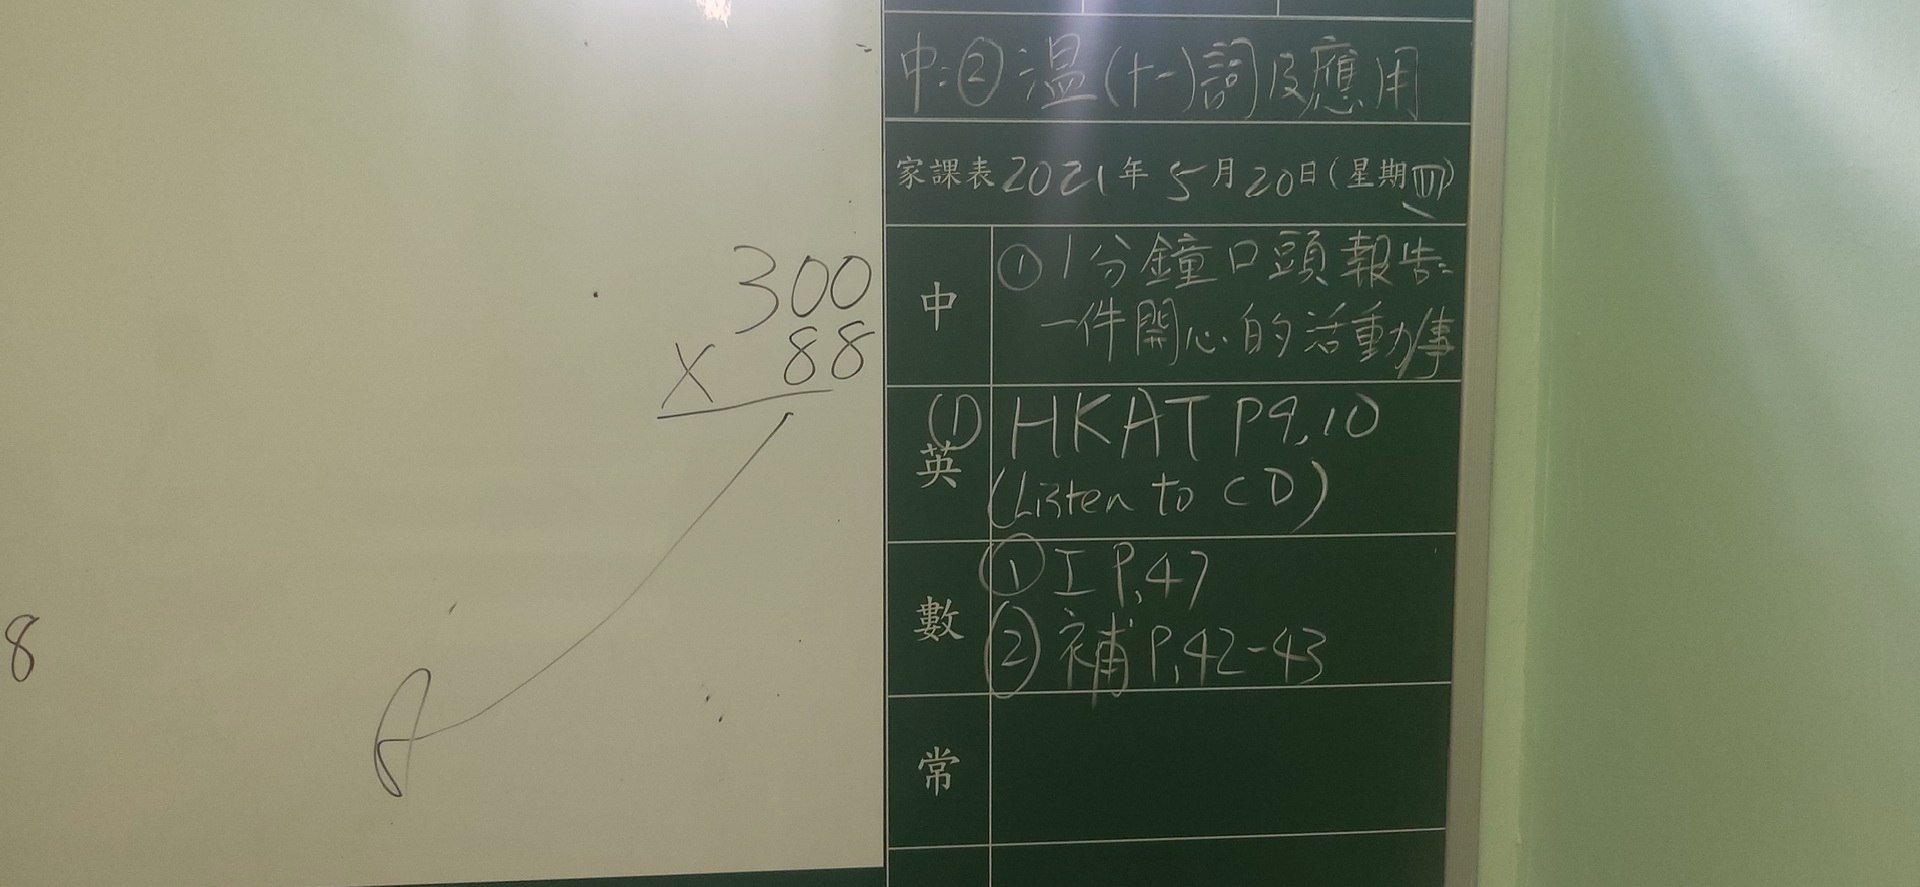 300
× 88
8
A
中:② 溫(十一)詞及應用
家課表 2021年 5月20日(星期四)
中 ① 1分鐘口頭報告:
一件開心的活動/事
英 (1) HKAT P9,10
(Listen to CD)
數 ① 工 P.47
② 補 P.42-43
常